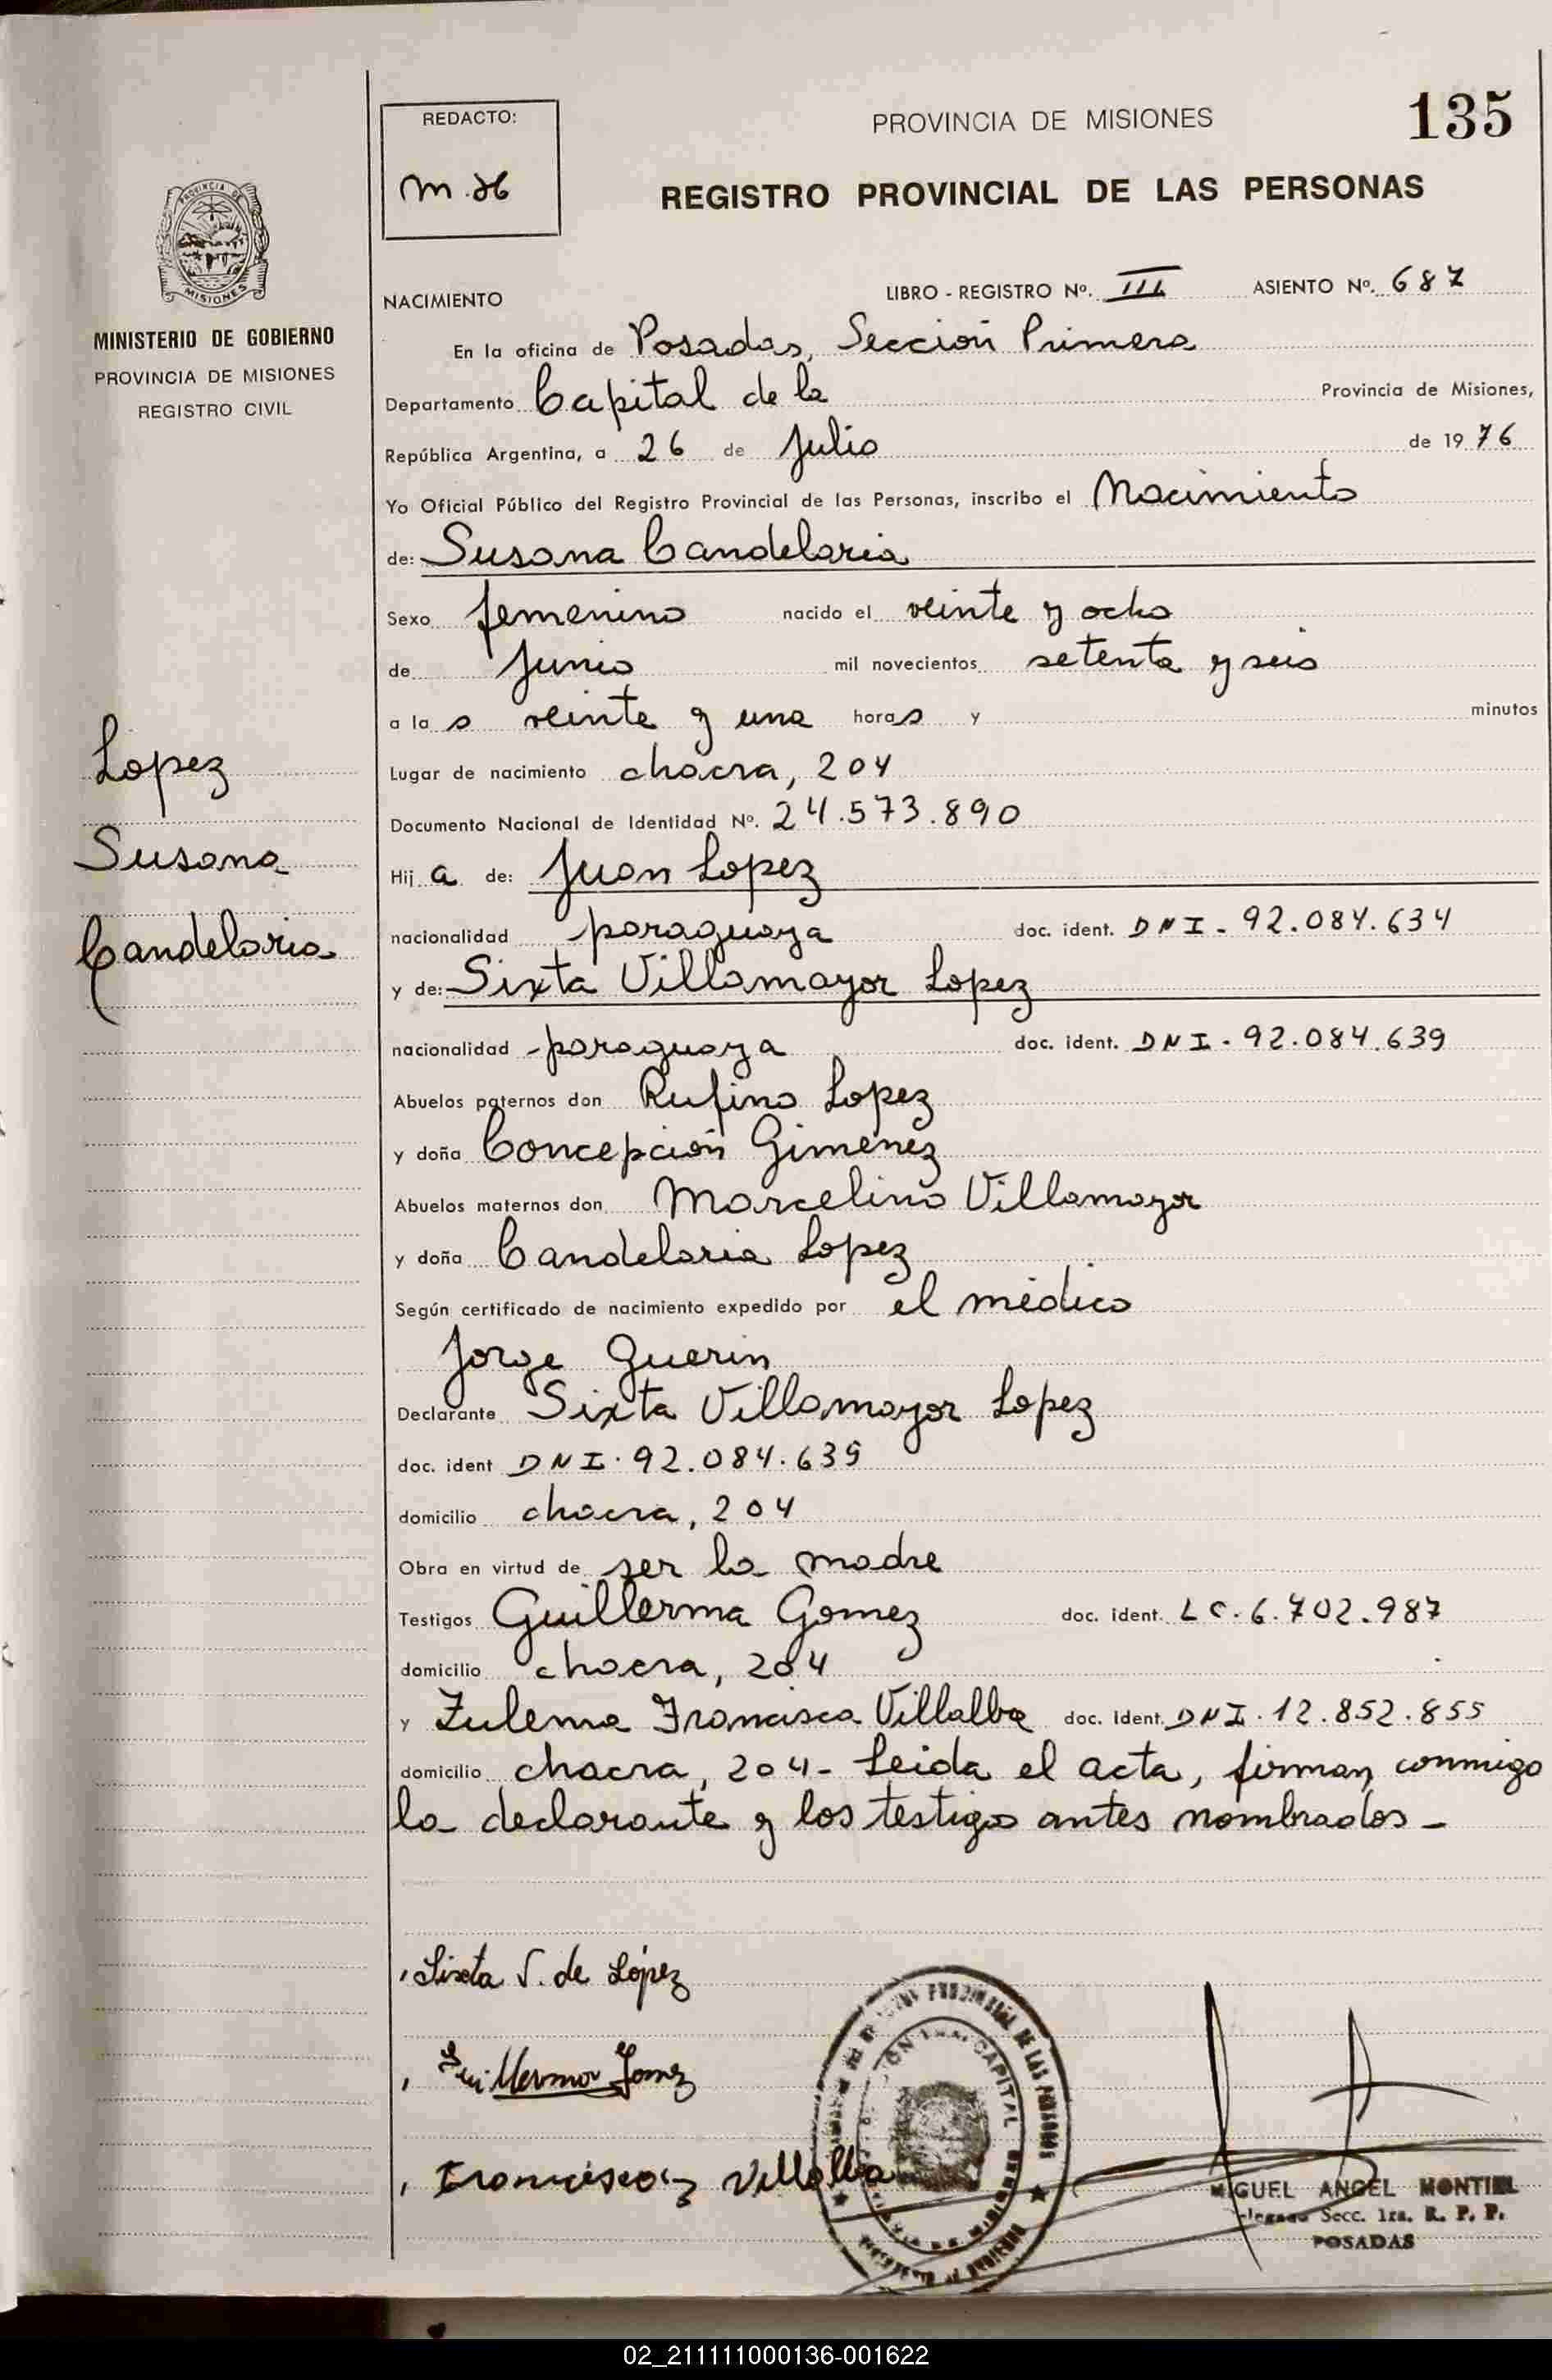 REDACTO:
M.H
PROVINCIA DE MISIONES
135
REGISTRO PROVINCIAL DE LAS PERSONAS
PROVINCIA DE
MISIONES
MINISTERIO DE GOBIERNO
PROVINCIA DE MISIONES
REGISTRO CIVIL
NACIMIENTO LIBRO - REGISTRO Nº. III ASIENTO Nº. 687
En la oficina de Posadas, Sección Primera
Departamento Capital de la Provincia de Misiones,
República Argentina, a 26 de Julio de 1976
Yo Oficial Público del Registro Provincial de las Personas, inscribo el Nacimiento
de: Susana Candelaria
Sexo femenino nacido el veinte y ocho
de Junio mil novecientos setenta y seis
a las veinte y una horas y minutos
Lopez
Susana
Candelaria
Lugar de nacimiento chacra, 204
Documento Nacional de Identidad Nº. 24.573.890
Hija de: Juan Lopez
nacionalidad paraguaya doc. ident. DNI - 92.084.634
y de: Sixta Villamayor Lopez
nacionalidad - paraguaya doc. ident. DNI - 92.084.639
Abuelos paternos don Rufino Lopez
y doña Concepción Gimenez
Abuelos maternos don Marcelino Villamayor
y doña Candelaria Lopez
Según certificado de nacimiento expedido por el médico
Jorge Guerin
Declarante Sixta Villamayor Lopez
doc. ident DNI. 92.084.639
domicilio chacra, 204
Obra en virtud de ser la madre
Testigos Guillerma Gomez doc. ident. LC. 6.702.987
domicilio chacra, 204
y Zulema Francisca Villalba doc. Ident. DNI. 12.852.855
domicilio chacra, 204 - Leida el acta, firman conmigo
la declarante y los testigos antes nombrados -
Sixta V. de López
Guillerma Gomez
Francisca Z Villalba
CAPITAL
MIGUEL ANGEL MONTIEL
Secc. 1ra. R. P. P.
POSADAS
02_211111000136-001622